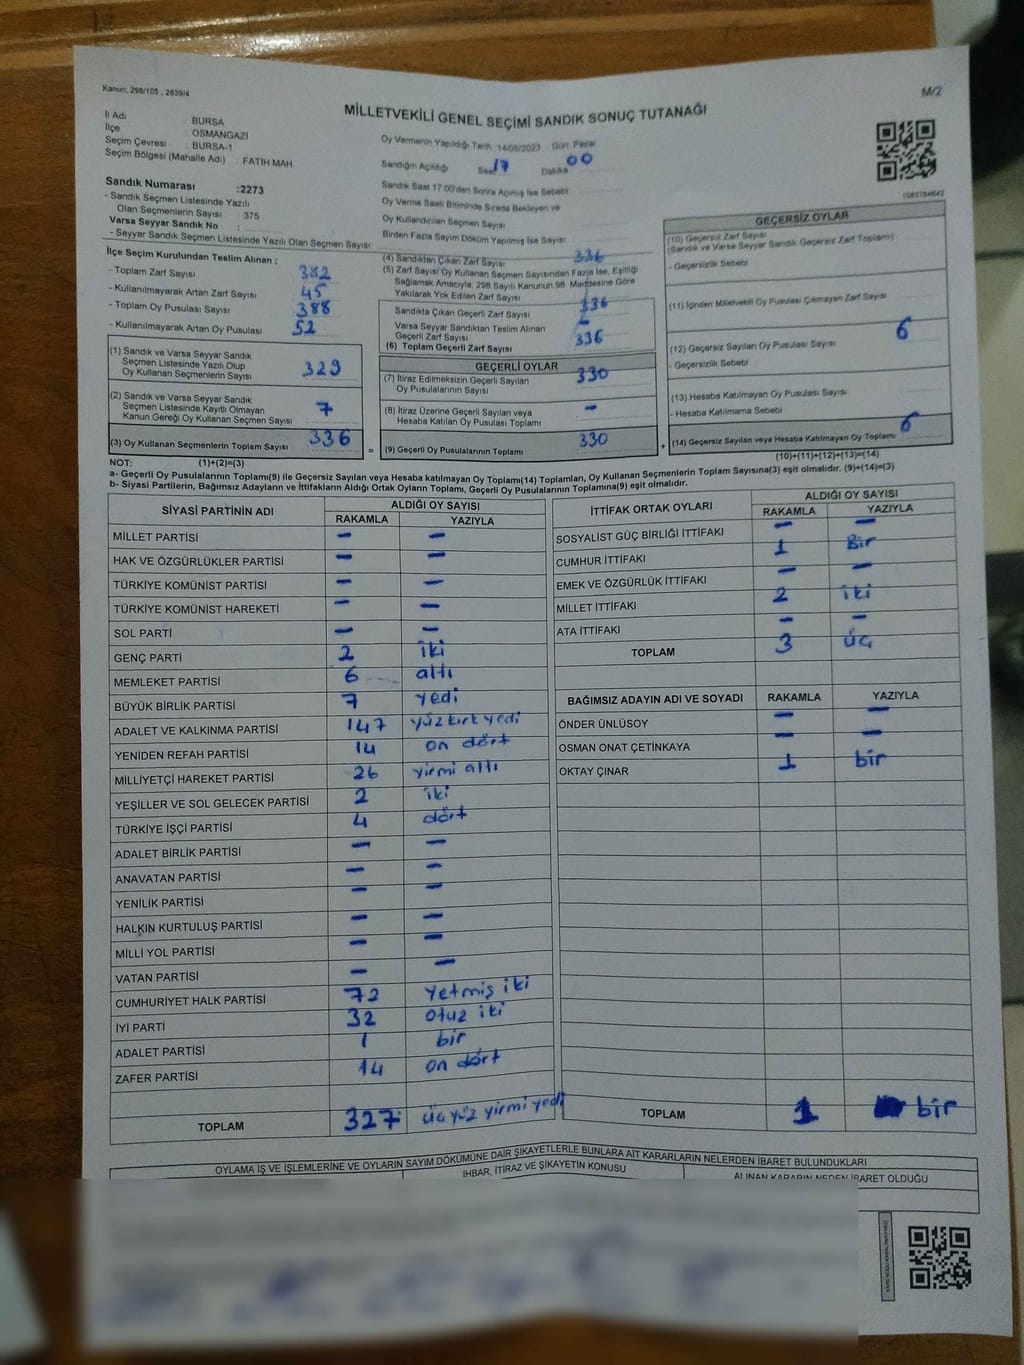 Kanun; 298/105 , 2839/4
M/2
MİLLETVEKİLİ GENEL SEÇİMİ SANDIK SONUÇ TUTANAĞI
İl Adı : BURSA
İlçe : OSMANGAZİ
Seçim Çevresi : BURSA-1
Seçim Bölgesi (Mahalle Adı) : FATİH MAH
Sandık Numarası :2273
- Sandık Seçmen Listesinde Yazılı
Olan Seçmenlerin Sayısı : 375
Varsa Seyyar Sandık No :
- Seyyar Sandık Seçmen Listesinde Yazılı Olan Seçmen Sayısı
Oy Vermenin Yapıldığı Tarih :14/05/2023 Gün: Pazar
Sandığın Açıldığı Saat 17 Dakika 00
Sandık Saat 17:00'den Sonra Açılmış İse Sebebi
Oy Verme Saati Bitiminde Sırada Bekleyen ve
Oy Kullandırılan Seçmen Sayısı
Birden Fazla Sayım Döküm Yapılmış İse Sayısı
İlçe Seçim Kurulundan Teslim Alınan ;
- Toplam Zarf Sayısı 382
- Kullanılmayarak Artan Zarf Sayısı 45
- Toplam Oy Pusulası Sayısı 388
- Kullanılmayarak Artan Oy Pusulası 52
(1) Sandık ve Varsa Seyyar Sandık
Seçmen Listesinde Yazılı Olup
Oy Kullanan Seçmenlerin Sayısı 329
(2) Sandık ve Varsa Seyyar Sandık
Seçmen Listesinde Kayıtlı Olmayan
Kanun Gereği Oy Kullanan Seçmen Sayısı 7
(3) Oy Kullanan Seçmenlerin Toplam Sayısı 336
(4) Sandıktan Çıkan Zarf Sayısı 336
(5) Zarf Sayısı Oy Kullanan Seçmen Sayısından Fazla İse, Eşitliği
Sağlamak Amacıyla, 298 Sayılı Kanunun 98. Maddesine Göre
Yakılarak Yok Edilen Zarf Sayısı
Sandıkta Çıkan Geçerli Zarf Sayısı 336
Varsa Seyyar Sandıktan Teslim Alınan
Geçerli Zarf Sayısı -
(6) Toplam Geçerli Zarf Sayısı 336
GEÇERLİ OYLAR
(7) İtiraz Edilmeksizin Geçerli Sayılan
Oy Pusulalarının Sayısı 330
(8) İtiraz Üzerine Geçerli Sayılan veya
Hesaba Katılan Oy Pusulası Toplamı -
=
(9) Geçerli Oy Pusulalarının Toplamı 330
+
GEÇERSİZ OYLAR
(10) Geçersiz Zarf Sayısı
(Sandık ve Varsa Seyyar Sandık Geçersiz Zarf Toplamı)
- Geçersizlik Sebebi
(11) İçinden Milletvekili Oy Pusulası Çıkmayan Zarf Sayısı
(12) Geçersiz Sayılan Oy Pusulası Sayısı 6
- Geçersizlik Sebebi
(13) Hesaba Katılmayan Oy Pusulası Sayısı
- Hesaba Katılmama Sebebi
(14) Geçersiz Sayılan veya Hesaba Katılmayan Oy Toplamı 6
NOT: (1)+(2)=(3)
(10)+(11)+(12)+(13)=(14)
a- Geçerli Oy Pusulalarının Toplamı(9) ile Geçersiz Sayılan veya Hesaba katılmayan Oy Toplamı(14) Toplamları, Oy Kullanan Seçmenlerin Toplam Sayısına(3) eşit olmalıdır. (9)+(14)=(3)
b- Siyasi Partilerin, Bağımsız Adayların ve İttifakların Aldığı Ortak Oyların Toplamı, Geçerli Oy Pusulalarının Toplamına(9) eşit olmalıdır.
SİYASİ PARTİNİN ADI
ALDIĞI OY SAYISI
RAKAMLA YAZIYLA
MİLLET PARTİSİ - -
HAK VE ÖZGÜRLÜKLER PARTİSİ - -
TÜRKİYE KOMÜNİST PARTİSİ - -
TÜRKİYE KOMÜNİST HAREKETİ - -
SOL PARTİ - -
GENÇ PARTİ 2 iki
MEMLEKET PARTİSİ 6 altı
BÜYÜK BİRLİK PARTİSİ 7 yedi
ADALET VE KALKINMA PARTİSİ 147 yüzkırkyedi
YENİDEN REFAH PARTİSİ 14 on dört
MİLLİYETÇİ HAREKET PARTİSİ 26 yirmi altı
YEŞİLLER VE SOL GELECEK PARTİSİ 2 iki
TÜRKİYE İŞÇİ PARTİSİ 4 dört
ADALET BİRLİK PARTİSİ - -
ANAVATAN PARTİSİ - -
YENİLİK PARTİSİ - -
HALKIN KURTULUŞ PARTİSİ - -
MİLLİ YOL PARTİSİ - -
VATAN PARTİSİ - -
CUMHURİYET HALK PARTİSİ 72 yetmiş iki
İYİ PARTİ 32 otuz iki
ADALET PARTİSİ 1 bir
ZAFER PARTİSİ 14 on dört
TOPLAM 327 üçyüz yirmi yedi
İTTİFAK ORTAK OYLARI
ALDIĞI OY SAYISI
RAKAMLA YAZIYLA
SOSYALİST GÜÇ BİRLİĞİ İTTİFAKI - -
CUMHUR İTTİFAKI 1 Bir
EMEK VE ÖZGÜRLÜK İTTİFAKI - -
MİLLET İTTİFAKI 2 iki
ATA İTTİFAKI - -
TOPLAM 3 üç
BAĞIMSIZ ADAYIN ADI VE SOYADI RAKAMLA YAZIYLA
ÖNDER ÜNLÜSOY - -
OSMAN ONAT ÇETİNKAYA - -
OKTAY ÇINAR 1 bir
TOPLAM 1 bir
OYLAMA İŞ VE İŞLEMLERİNE VE OYLARIN SAYIM DÖKÜMÜNE DAİR ŞİKAYETLERLE BUNLARA AİT KARARLARIN NELERDEN İBARET BULUNDUKLARI
İHBAR, İTİRAZ VE ŞİKAYETİN KONUSU
ALINAN KARARIN NEDEN İBARET OLDUĞU